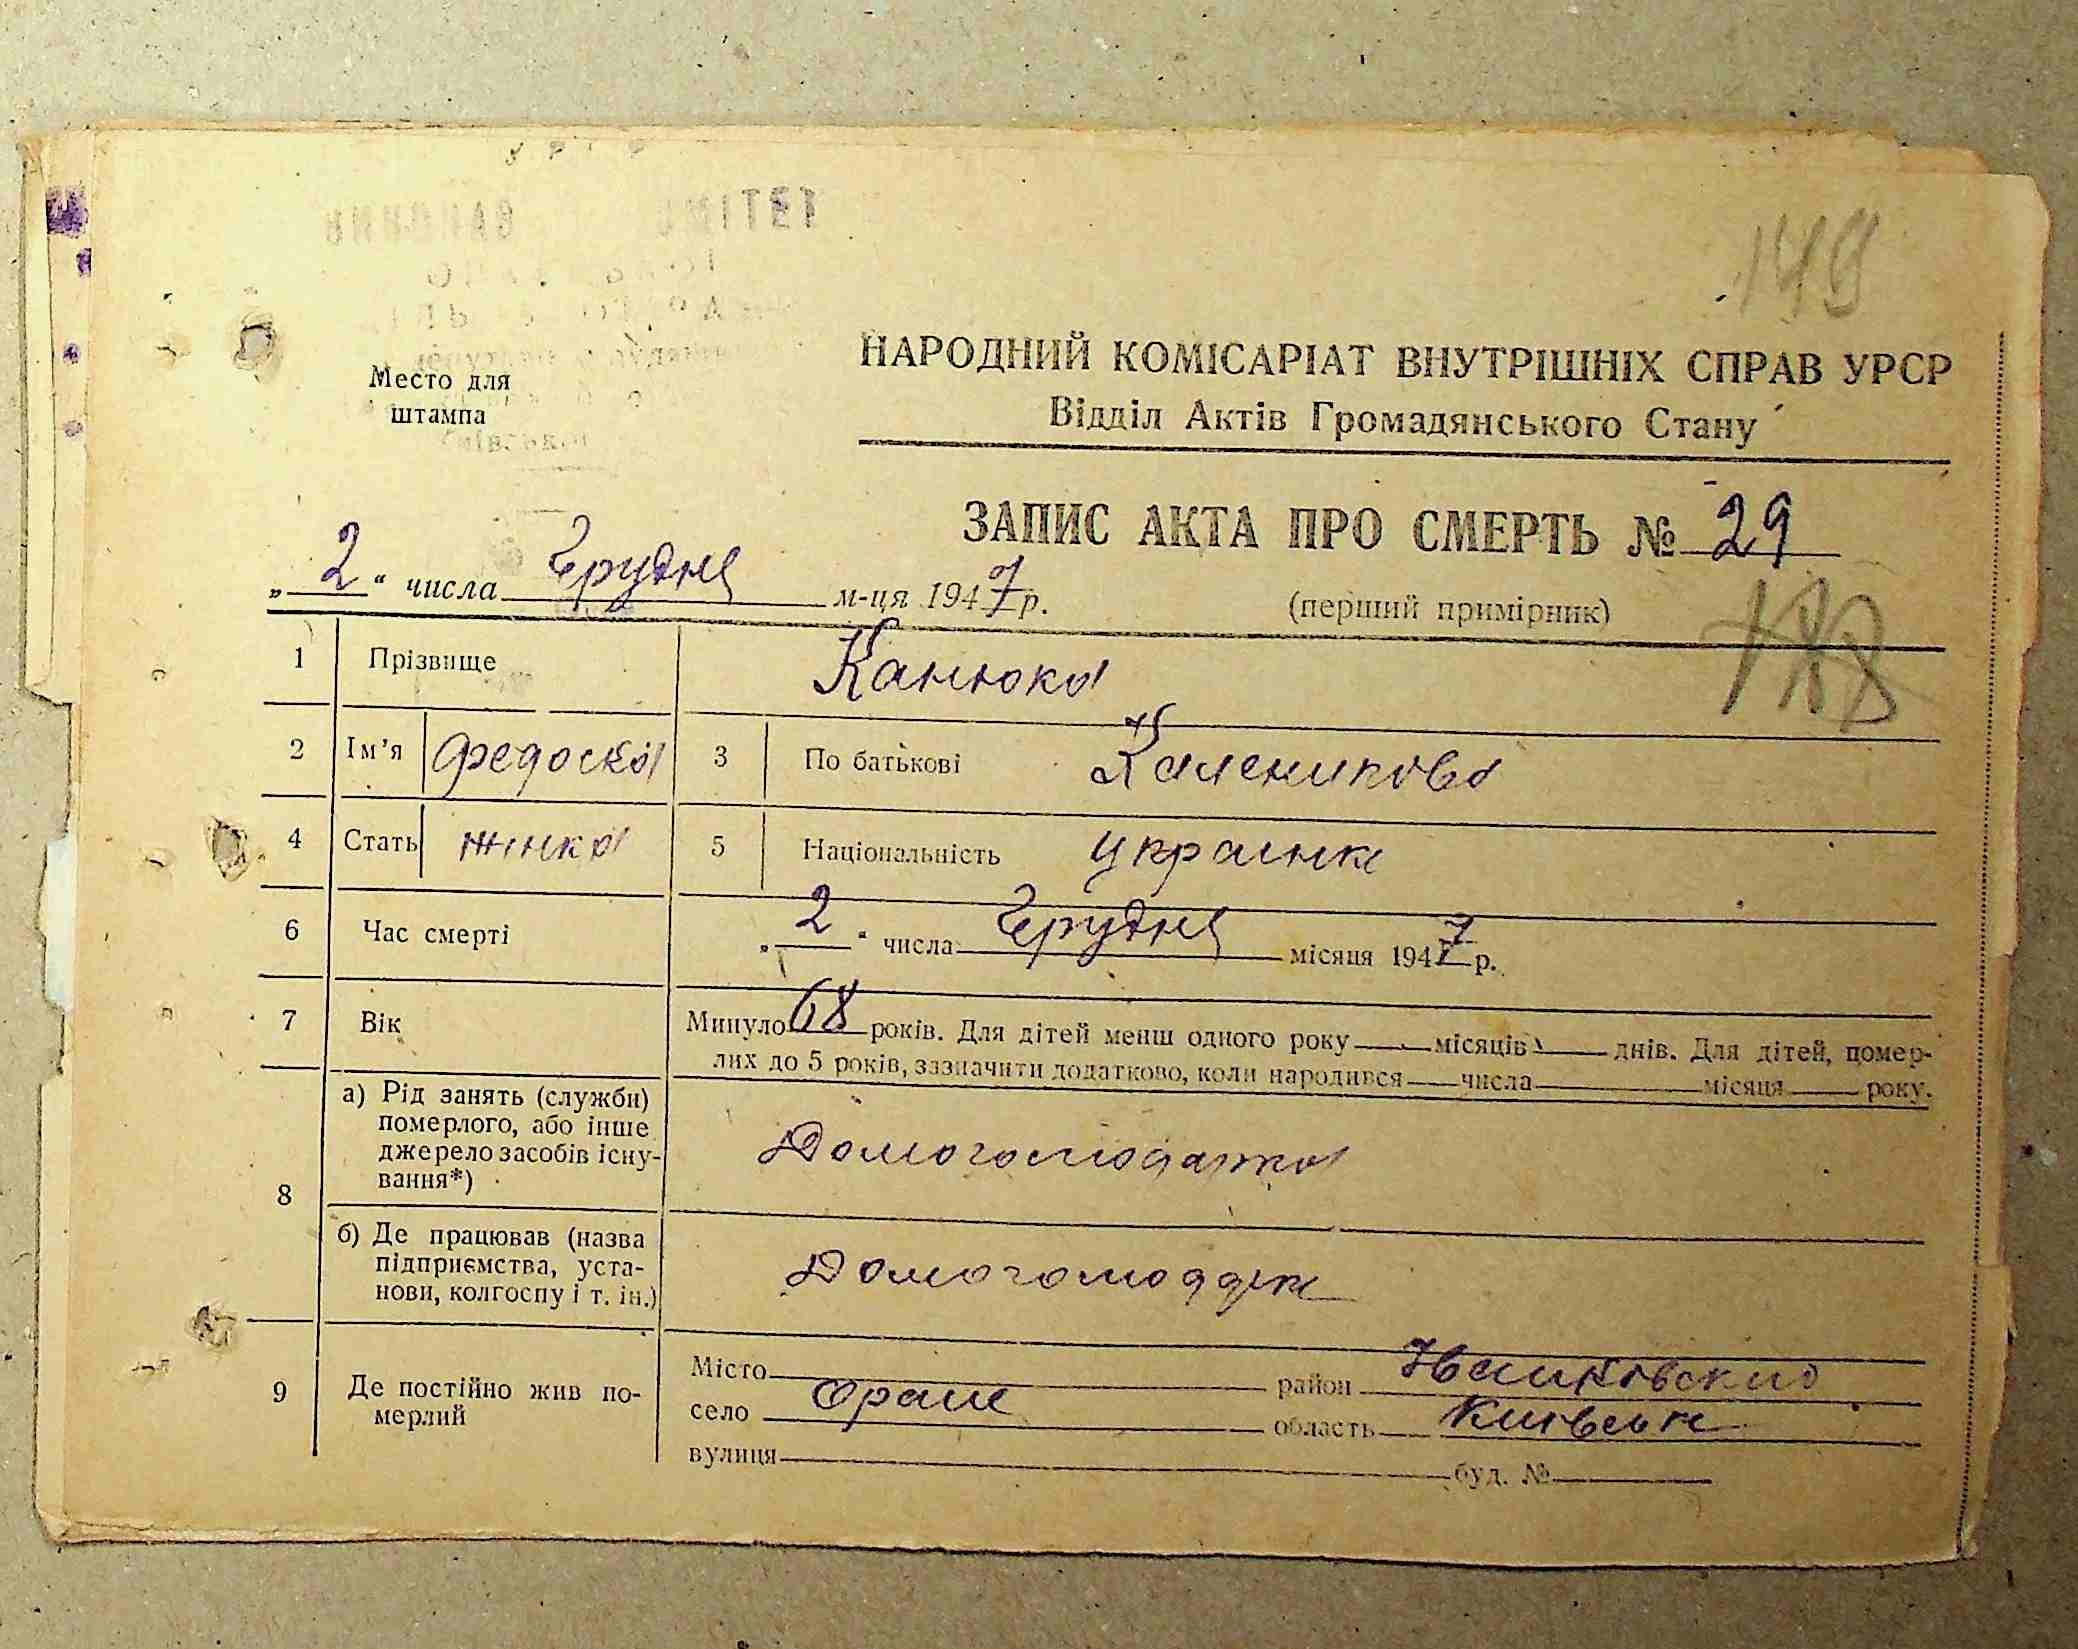 149
Место для
штампа
НАРОДНИЙ КОМІСАРІАТ ВНУТРІШНІХ СПРАВ УРСР
Відділ Актів Громадянського Стану
ЗАПИС АКТА ПРО СМЕРТЬ № 29
„ 2 “ числа Грудня м-ця 1947 р.
(перший примірник)
188
1 Прізвище Канюка
2 Ім'я Федоска 3 По батькові Каленикова
4 Стать жінка 5 Національність украінка
6 Час смерті „ 2 “ числа Грудня місяця 1947 р.
7 Вік Минуло 68 років. Для дітей менш одного року місяців днів. Для дітей, помер-
лих до 5 років, зазначити додатково, коли народився числа місяця року.
8 а) Рід занять (служби)
померлого, або інше
джерело засобів існу-
вання*)
Домогосподарка
б) Де працював (назва
підприємства, уста-
нови, колгоспу і т. ін.)
9 Де постійно жив по-
мерлий
Місто район Іванковский
село Оране область Київська
вулиця буд. №